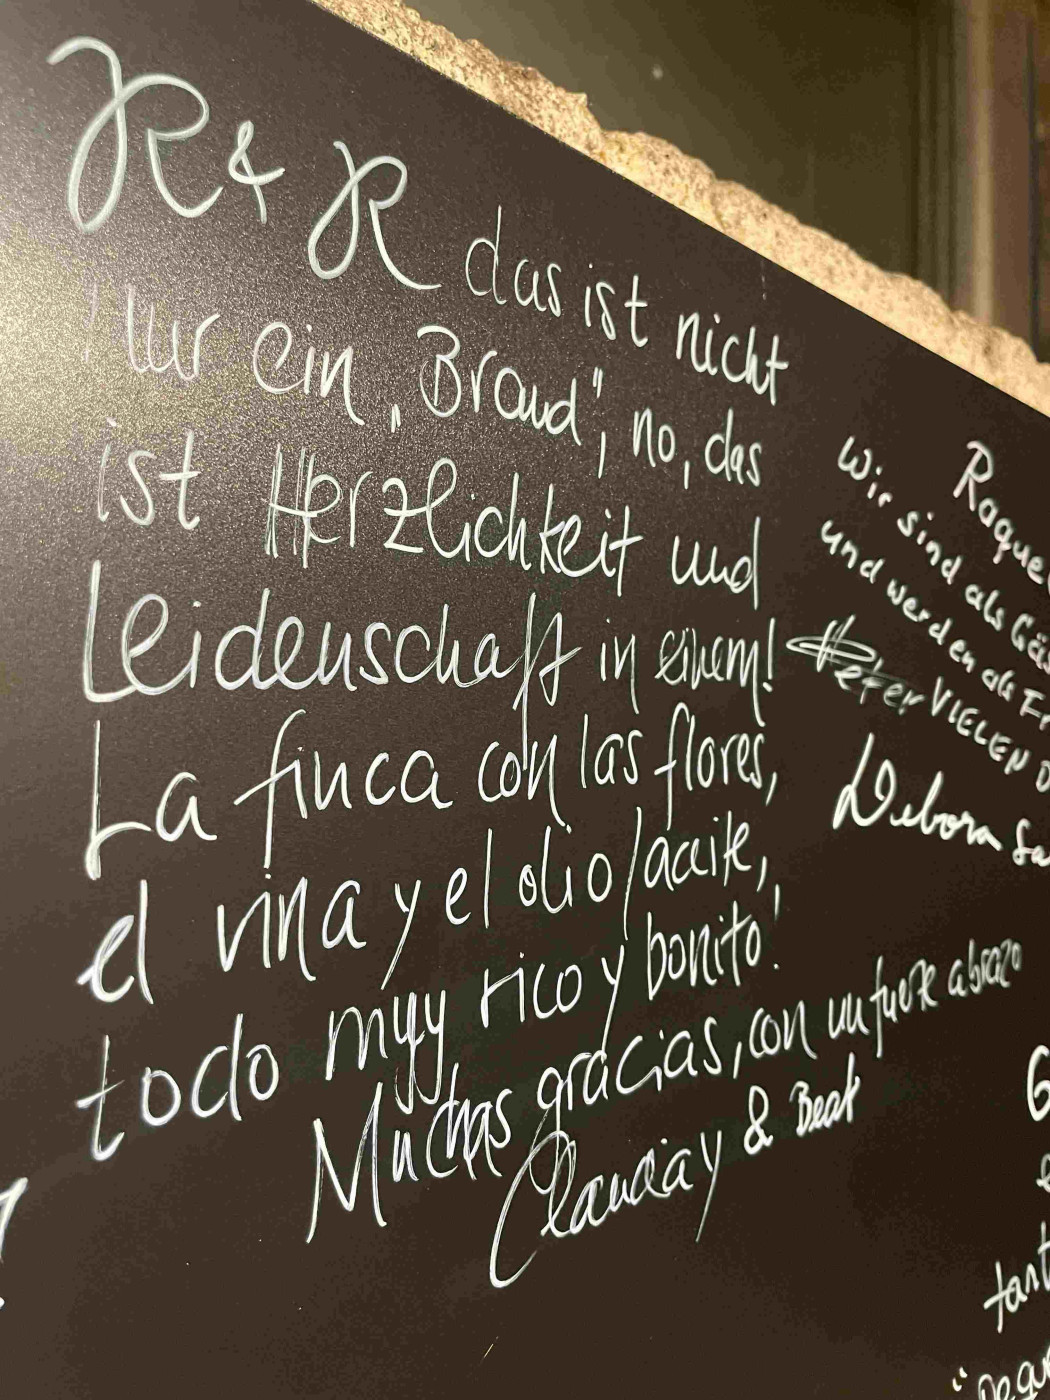 R & R das ist nicht
nur ein „Brand", no, das
ist Herzlichkeit und
Leidenschaft in einem!
La finca con las flores,
el vina y el olio/aceite,
todo muy rico y bonito!
Muchas gracias, con un fuerte abrazo
Claudia y & Beat
Raquel
Wir sind als Gäs
und werden als Fr
Peter VIELEN D
Debora Sa
G
tant